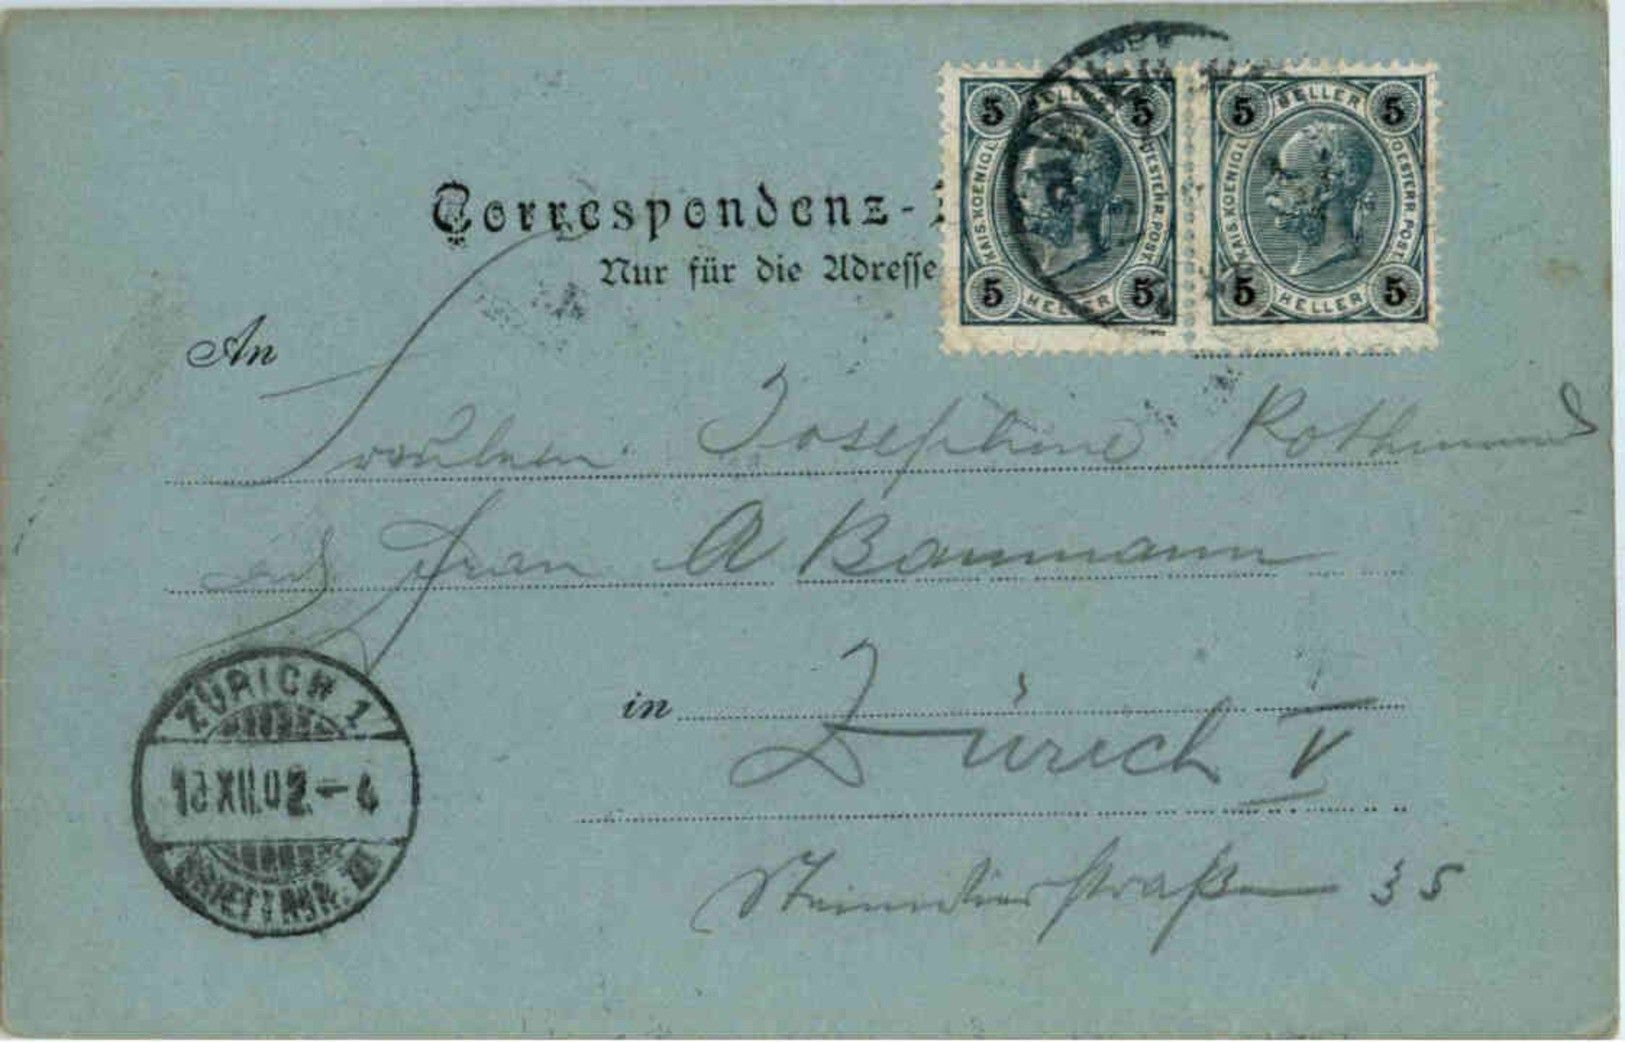 Correspondenz-
Nur für die Adresse
5 HELLER 5
KAIS. KOENIGL. OESTERR. POST.
5 HELLER 5
5 HELLER 5
KAIS. KOENIGL. OESTERR. POST.
5 HELLER 5
An
Fräulein Josephine
Frau A Baumann
in Zürich V
35
ZÜRICH 1
XII.02.-4